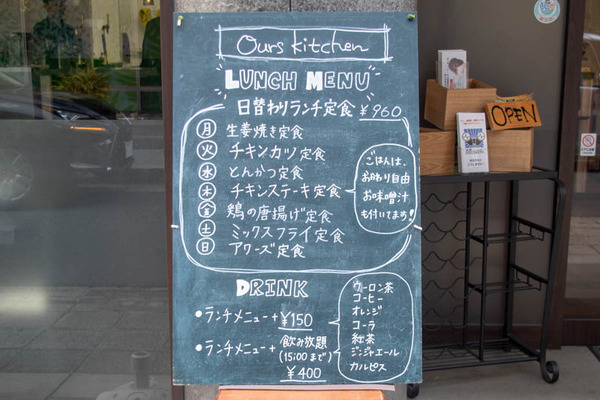 Ours kitchen
LUNCH MENU
日替わりランチ定食 ¥960
月 生姜焼き定食
火 チキンカツ定食
水 とんかつ定食
木 チキンステーキ定食
金 鶏の唐揚げ定食
土 ミックスフライ定食
日 アワーズ定食
ごはんは、
お昧り自由
お味噌汁
も付いてます!
DRINK
●ランチメニュー+ ¥150
●ランチメニュー+ 飲み放題
(15:00まで)
¥400
ウーロン茶
コーヒー
オレンジ
コーラ
紅茶
ジンジャエール
カルピス
OPEN